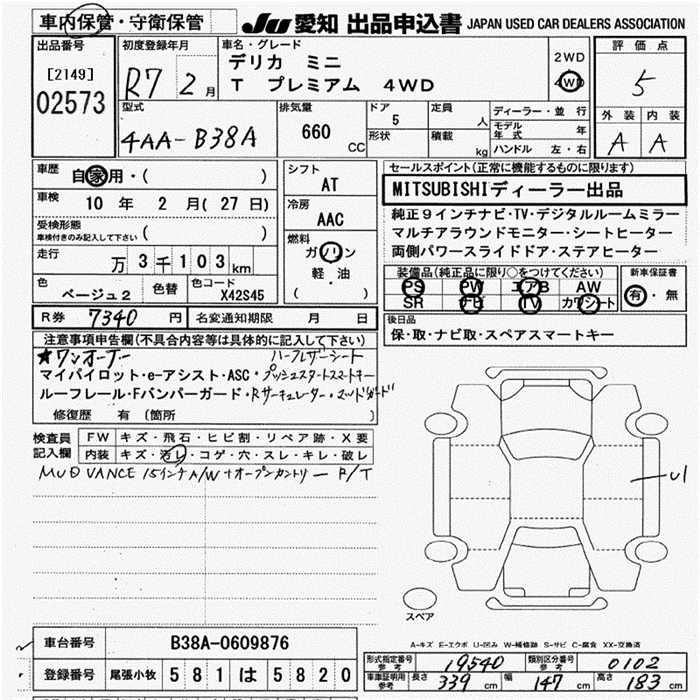 車内保管・守衛保管
JU 愛知 出品申込書 JAPAN USED CAR DEALERS ASSOCIATION
出品番号
[2149]
02573
初度登録年月
R7 2月
車名・グレード
デリカ ミニ
T プレミアム 4WD
2WD
4WD
評価点
5
外装 内装
A A
型式
4AA-B38A
排気量
660
CC
ドア
5
形状
定員
人
積載
kg
ディーラー・並行
モデル年式 年
ハンドル 左・右
車歴
自家用・( )
車検
10年 2月(27日)
受検形態
車検付きのみ記入して下さい ( )
走行
万3千103km
色
ベージュ2
色替
色コード
X42S45
シフト
AT
冷房
AAC
燃料
ガソリン
軽・油
( )
セールスポイント(正常に機能するものに限ります)
MITSUBISHIディーラー出品
純正9インチナビ・TV・デジタルルームミラー
マルチアラウンドモニター・シートヒーター
両側パワースライドドア・ステアヒーター
装備品(純正品に限り○をつけてください)
PS PW エアB AW
SR ナビ TV カワシート
新車保証書
有・無
R券 7340 円 名変通知期限 月 日
後日品
保・取・ナビ取・スペアスマートキー
注意事項申告欄(不具合内容等は具体的に記入して下さい)
★ワンオーナー ハーフレザーシート
マイパイロット・e-アシスト・ASC・プッシュスタートスマートキー
ルーフレール・Fバンパーガード・Rサーキュレーター・マッドガード
修復歴 有(箇所 )
検査員記入欄
FW キズ・飛石・ヒビ割・リペア跡・X要
内装 キズ・汚レ・コゲ・穴・スレ・キレ・破レ
MUD VANCE 15インチA/W+オープンカントリー R/T
U1
スペア
A-キズ E-エクボ U-凹み W-補修跡 S-サビ C-腐食 XX-交換済
車台番号 B38A-0609876
登録番号 尾張小牧 581 は 5820
形式指定番号 参考 19540 類別区分番号 参考 0102
車庫証明用 参考 長さ 339 cm 幅 147 cm 高さ 183 cm